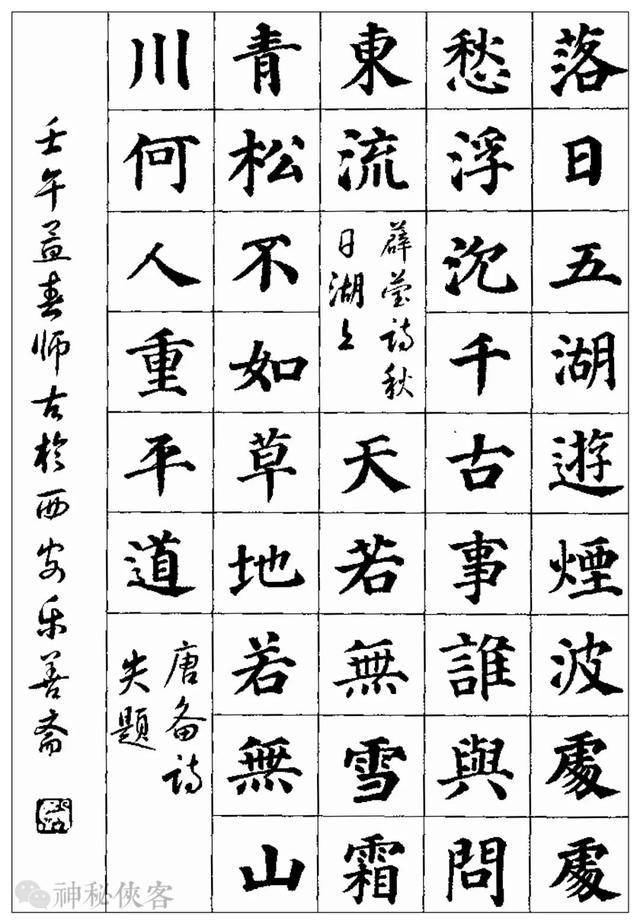 落日五湖遊煙波處處
愁浮沉千古事誰與問
東流
薛莹诗秋
日湖上
天若無雪霜
青松不如草地若無山
川何人重平道
唐备诗
失题
壬午益春师古於西安乐善斋
神秘俠客